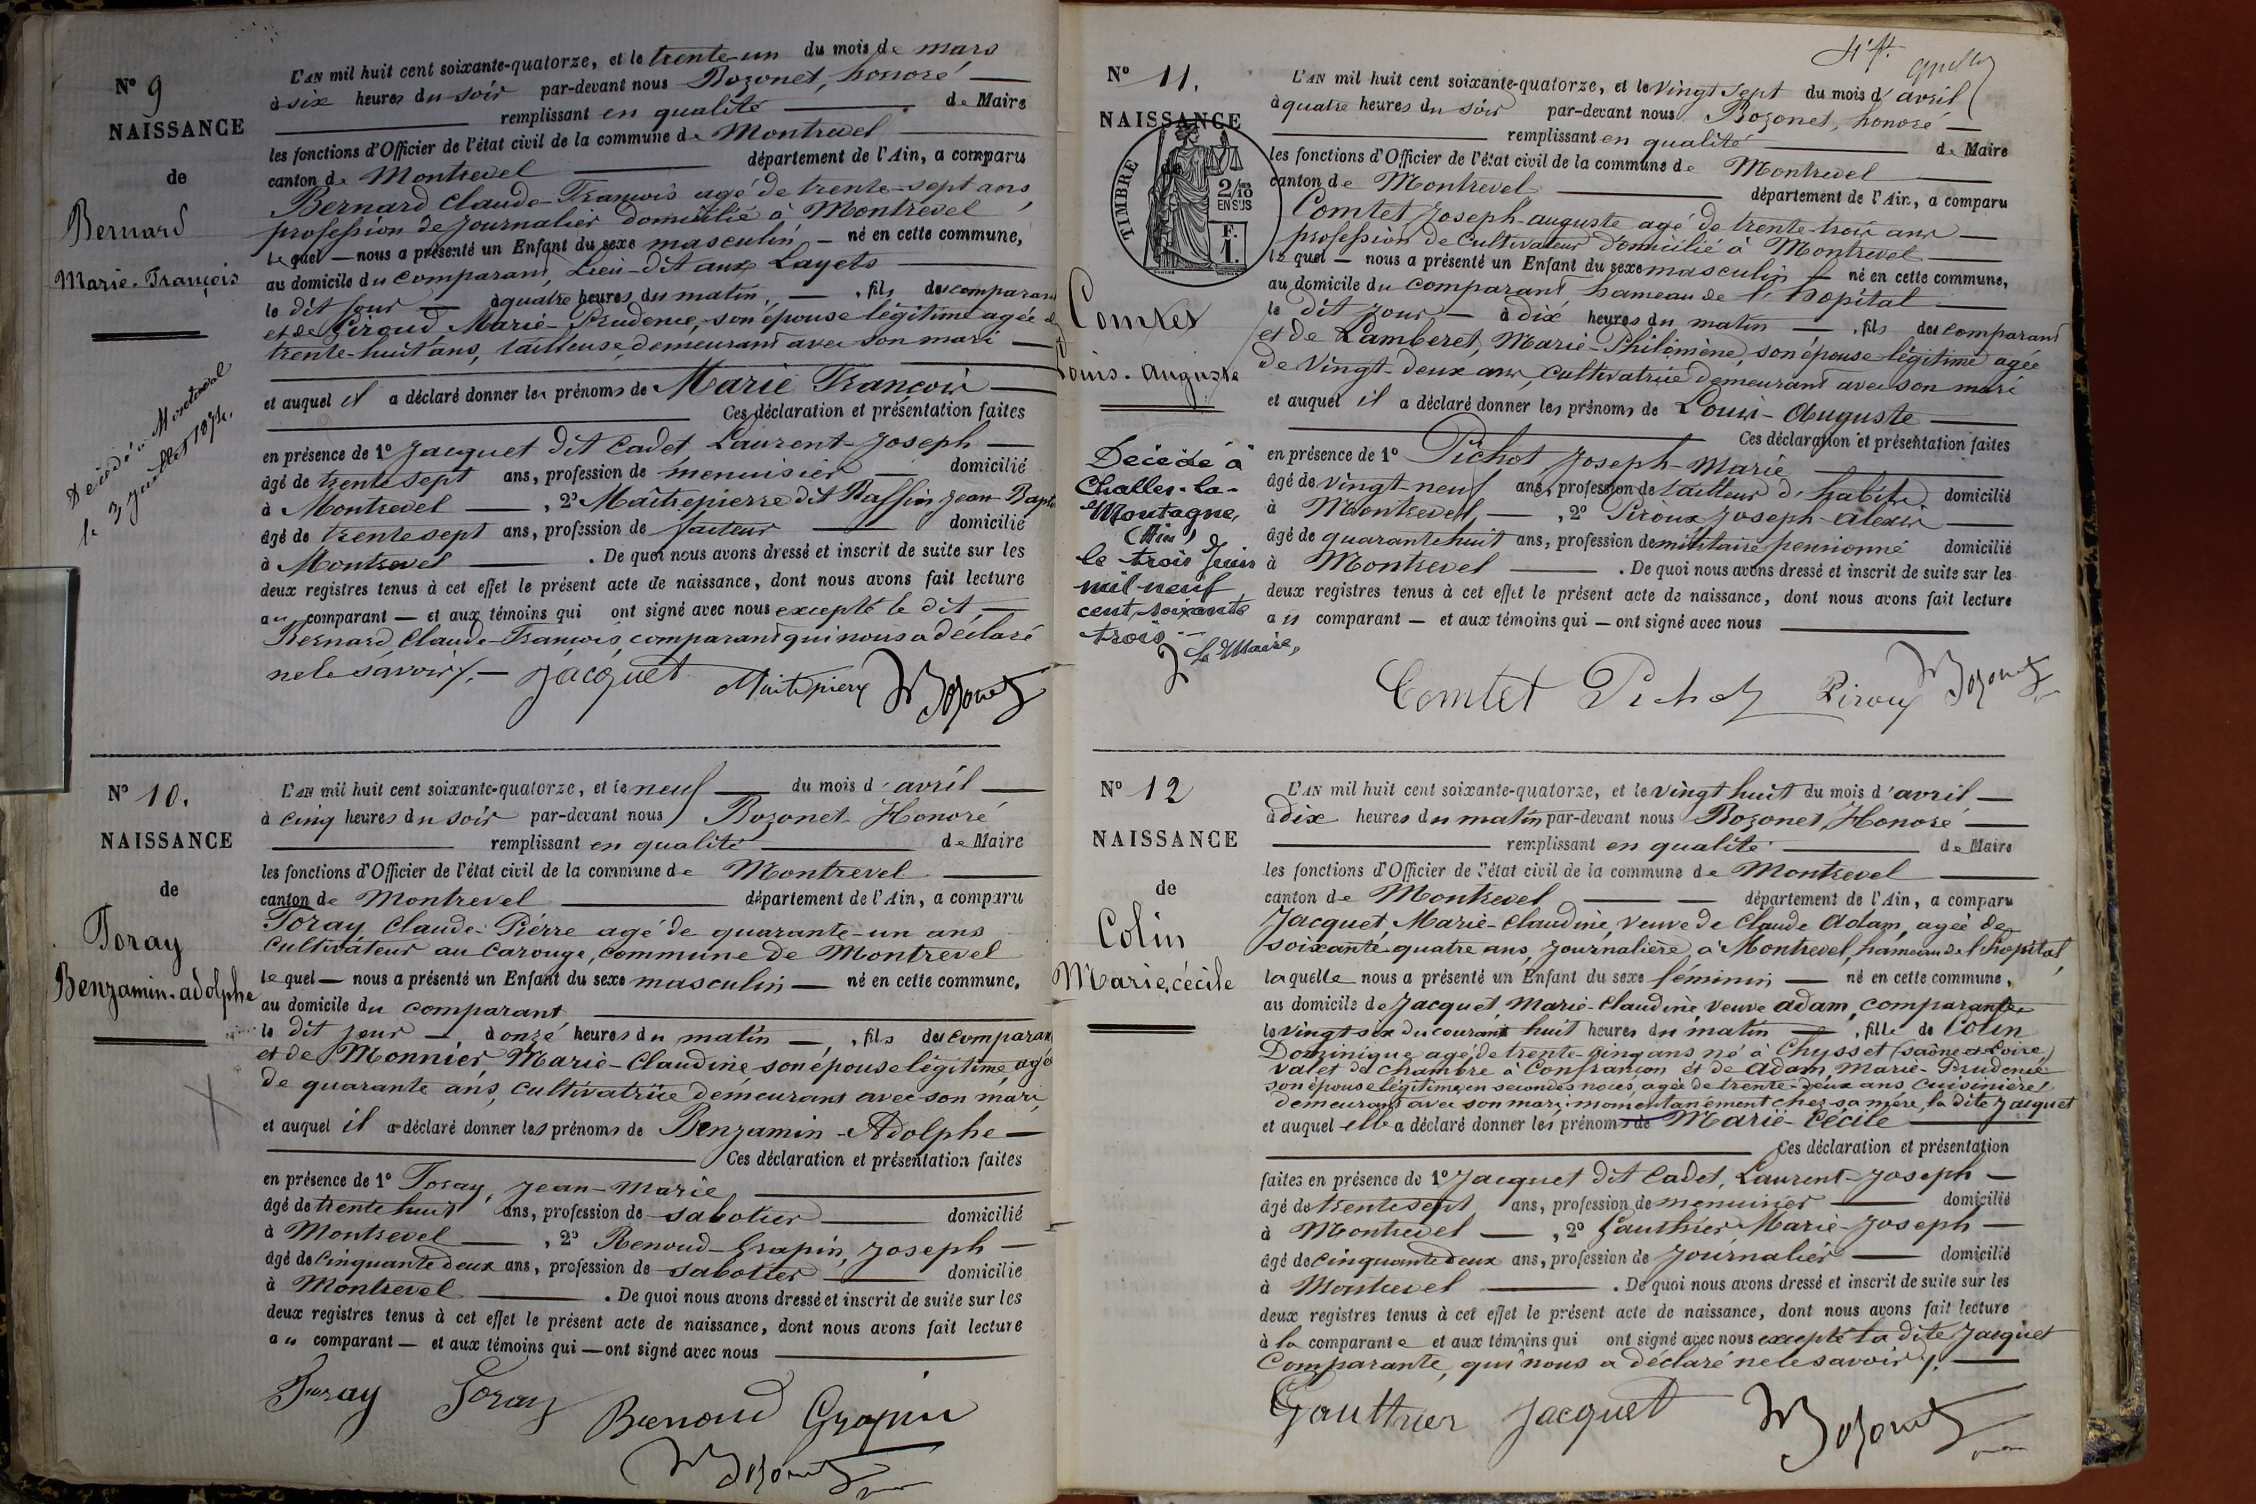 N° 9
NAISSANCE
de
Bernard
Marie-François
Décédé à Montrevel
le 3 juillet 1874.
L'AN mil huit cent soixante-quatorze, et le trente-un du mois de mars
à six heures du soir par-devant nous Bozonet, honoré
remplissant en qualité de Maire
les fonctions d'Officier de l'état civil de la commune de Montrevel
canton de Montrevel département de l'Ain, a comparu
Bernard Claude-François agé de trente-sept ans,
profession de journalier domicilié à Montrevel
lequel nous a présenté un Enfant du sexe masculin né en cette commune,
au domicile du comparant, Lieu-dit aux Layets
le dit jour à quatre heures du matin, fils des comparant
et de Piroud Marie-Prudence, son épouse légitime agée de
trente-huit ans, tailleuse demeurant avec son mari
et auquel il a déclaré donner les prénoms de Marie François
Ces déclaration et présentation faites
en présence de 1° Jacquet dit Cadet, Laurent-Joseph
âgé de trente sept ans, profession de menuisier domicilié
à Montrevel, 2° Maîtrepierre dit Raffin, Jean-Bapt
âgé de trente sept ans, profession de facteur domicilié
à Montrevel. De quoi nous avons dressé et inscrit de suite sur les
deux registres tenus à cet effet le présent acte de naissance, dont nous avons fait lecture
au comparant et aux témoins qui ont signé avec nous excepté le dit
Bernard, Claude-François, comparant qui nous a déclaré
ne le savoir. Jacquet Maitrepierre Bozonet
N° 10.
NAISSANCE
de
Foray
Benjamin-adolphe
L'AN mil huit cent soixante-quatorze, et le neuf du mois d'avril
à cinq heures du soir par-devant nous Bozonet Honoré
remplissant en qualité de Maire
les fonctions d'Officier de l'état civil de la commune de Montrevel
canton de Montrevel département de l'Ain, a comparu
Foray, Claude-Pierre agé de quarante-un ans
cultivateur au Carouge, commune de Montrevel
lequel nous a présenté un Enfant du sexe masculin né en cette commune,
au domicile du comparant
le dit jour à onze heures du matin, fils des comparant
et de Monnier Marie-Claudine son épouse légitime agée
de quarante ans, cultivatrice demeurant avec son mari,
et auquel il a déclaré donner les prénoms de Benjamin-Adolphe
Ces déclaration et présentation faites
en présence de 1° Foray, Jean-Marie
âgé de trente huit ans, profession de sabotier domicilié
à Montrevel, 2° Renoud-Grapin, Joseph
âgé de cinquante deux ans, profession de sabotier domicilié
à Montrevel. De quoi nous avons dressé et inscrit de suite sur les
deux registres tenus à cet effet le présent acte de naissance, dont nous avons fait lecture
au comparant et aux témoins qui ont signé avec nous
Foray Foray Renoud Grapin
Bozonet
N° 11.
NAISSANCE
TIMBRE
2/10
EN SUS
F.
1.
Comtet
Louis-Auguste
Décédé à
Challes-la-
Montagne,
(Ain),
le trois Juin
mil neuf
cent soixante
trois
Le Maire,
L'AN mil huit cent soixante-quatorze, et le vingt sept du mois d'avril
à quatre heures du soir par-devant nous Bozonet, honoré
remplissant en qualité de Maire
les fonctions d'Officier de l'état civil de la commune de Montrevel
canton de Montrevel département de l'Ain, a comparu
Comtet Joseph-auguste agé de trente-trois ans
profession de cultivateur domicilié à Montrevel
lequel nous a présenté un Enfant du sexe masculin né en cette commune,
au domicile du comparant, hameau de l'hopital
le dit jour à dix heures du matin, fils des comparant
et de Lamberet, Marie-Philomène, son épouse légitime agée
de vingt-deux ans, cultivatrice demeurant avec son mari
et auquel il a déclaré donner les prénoms de Louis-Auguste
Ces déclaration et présentation faites
en présence de 1° Pichot Joseph-Marie
âgé de vingt-neuf ans, profession de tailleur d'habits domicilié
à Montrevel, 2° Piroux Joseph-Alexis
âgé de quarante huit ans, profession de militaire pensionné domicilié
à Montrevel. De quoi nous avons dressé et inscrit de suite sur les
deux registres tenus à cet effet le présent acte de naissance, dont nous avons fait lecture
au comparant et aux témoins qui ont signé avec nous
Comtet Pichot Piroux Bozonet
N° 12
NAISSANCE
de
Colin
Marie, cécile
L'AN mil huit cent soixante-quatorze, et le vingt huit du mois d'avril
à dix heures du matin par-devant nous Bozonet, Honoré
remplissant en qualité de Maire
les fonctions d'Officier de l'état civil de la commune de Montrevel
canton de Montrevel département de l'Ain, a comparu
Jacquet, Marie-Claudine, veuve de Claude Adam, agée de
soixante quatre ans, journalière à Montrevel, hameau de l'hopital,
laquelle nous a présenté un Enfant du sexe féminin né en cette commune,
au domicile de Jacquet, Marie-Claudine veuve Adam, comparante
le vingt six du courant huit heures du matin, fille de Colin
Dominique agé de trente-cinq ans né à Chysset (Saône et Loire)
valet de chambre à Confrançon et de Adam, Marie-Prudence
son épouse légitime en secondes noces, agée de trente-deux ans, cuisinière
demeurant avec son mari, momentanément chez sa mère, la dite Jacquet
et auquel elle a déclaré donner les prénoms de Marie-Cécile
Ces déclaration et présentation
faites en présence de 1° Jacquet dit Cadet, Laurent-Joseph
âgé de trente sept ans, profession de menuisier domicilié
à Montrevel, 2° Gauthier Marie-Joseph
âgé de cinquante deux ans, profession de journalier domicilié
à Montrevel. De quoi nous avons dressé et inscrit de suite sur les
deux registres tenus à cet effet le présent acte de naissance, dont nous avons fait lecture
à la comparante et aux témoins qui ont signé avec nous excepté la dite Jacquet
Comparante, qui nous a déclaré ne le savoir.
Gauthier Jacquet Bozonet